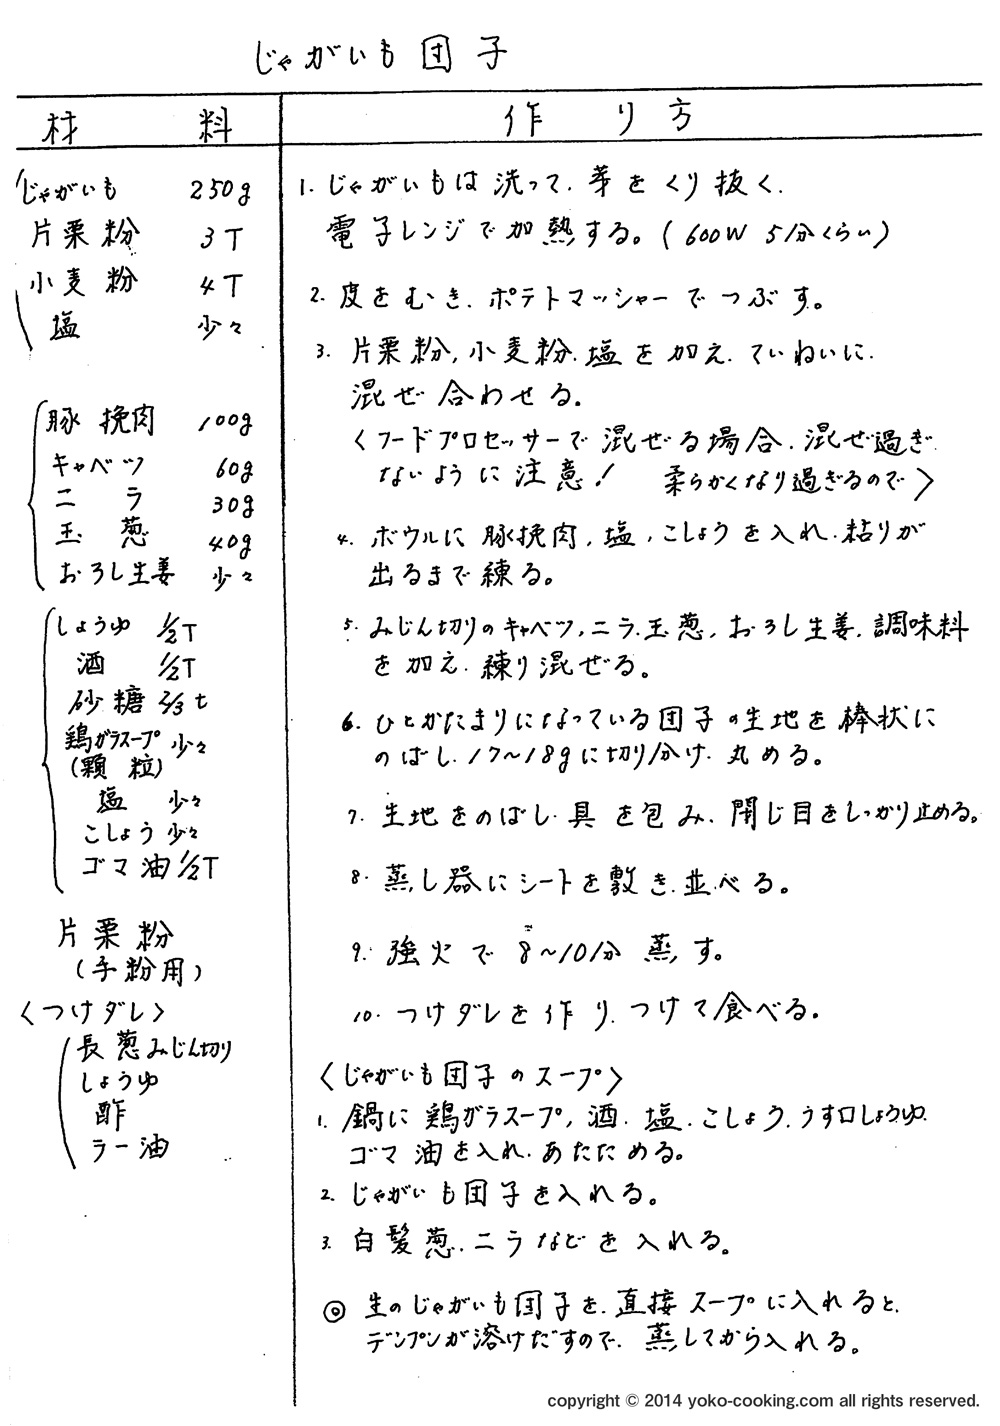 じゃがいも団子
材料
じゃがいも 250g
片栗粉 3T
小麦粉 4T
塩 少々
豚挽肉 100g
キャベツ 60g
ニラ 30g
玉葱 40g
おろし生姜 少々
しょうゆ 1/2T
酒 1/2T
砂糖 2/3t
鶏ガラスープ 少々
(顆粒)
塩 少々
こしょう 少々
ゴマ油 1/2T
片栗粉
(手粉用)
〈つけダレ〉
長葱みじん切り
しょうゆ
酢
ラー油
作り方
1. じゃがいもは洗って、芽をくり抜く.
電子レンジで加熱する。(600W 5分くらい)
2. 皮をむき、ポテトマッシャーでつぶす。
3. 片栗粉,小麦粉、塩を加え、ていねいに、
混ぜ合わせる。
〈フードプロセッサーで混ぜる場合、混ぜ過ぎ
ないように注意! 柔らかくなり過ぎるので〉
4. ボウルに豚挽肉,塩,こしょうを入れ、粘りが
出るまで練る。
5. みじん切りのキャベツ,ニラ、玉葱,おろし生姜、調味料
を加え、練り混ぜる。
6. ひとかたまりになっている団子の生地を棒状に
のばし、17〜18gに切り分け、丸める。
7. 生地をのばし、具を包み、閉じ目をしっかり止める。
8. 蒸し器にシートを敷き、並べる。
9. 強火で8〜10分蒸す。
10. つけダレを作り、つけて食べる。
〈じゃがいも団子のスープ〉
1. 鍋に鶏ガラスープ,酒、塩、こしょう、うす口しょうゆ、
ゴマ油を入れ、あたためる。
2. じゃがいも団子を入れる。
3. 白髪葱、ニラなどを入れる。
◎ 生のじゃがいも団子を、直接スープに入れると、
デンプンが溶けだすので、蒸してから入れる。
copyright © 2014 yoko-cooking.com all rights reserved.